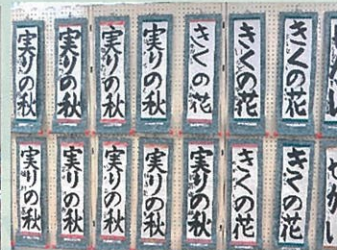 実りの秋
実りの秋
実りの秋
実りの秋
きくの花
きくの花
きくの花
実りの秋
実りの秋
実りの秋
実りの秋
実りの秋
きくの花
きくの花